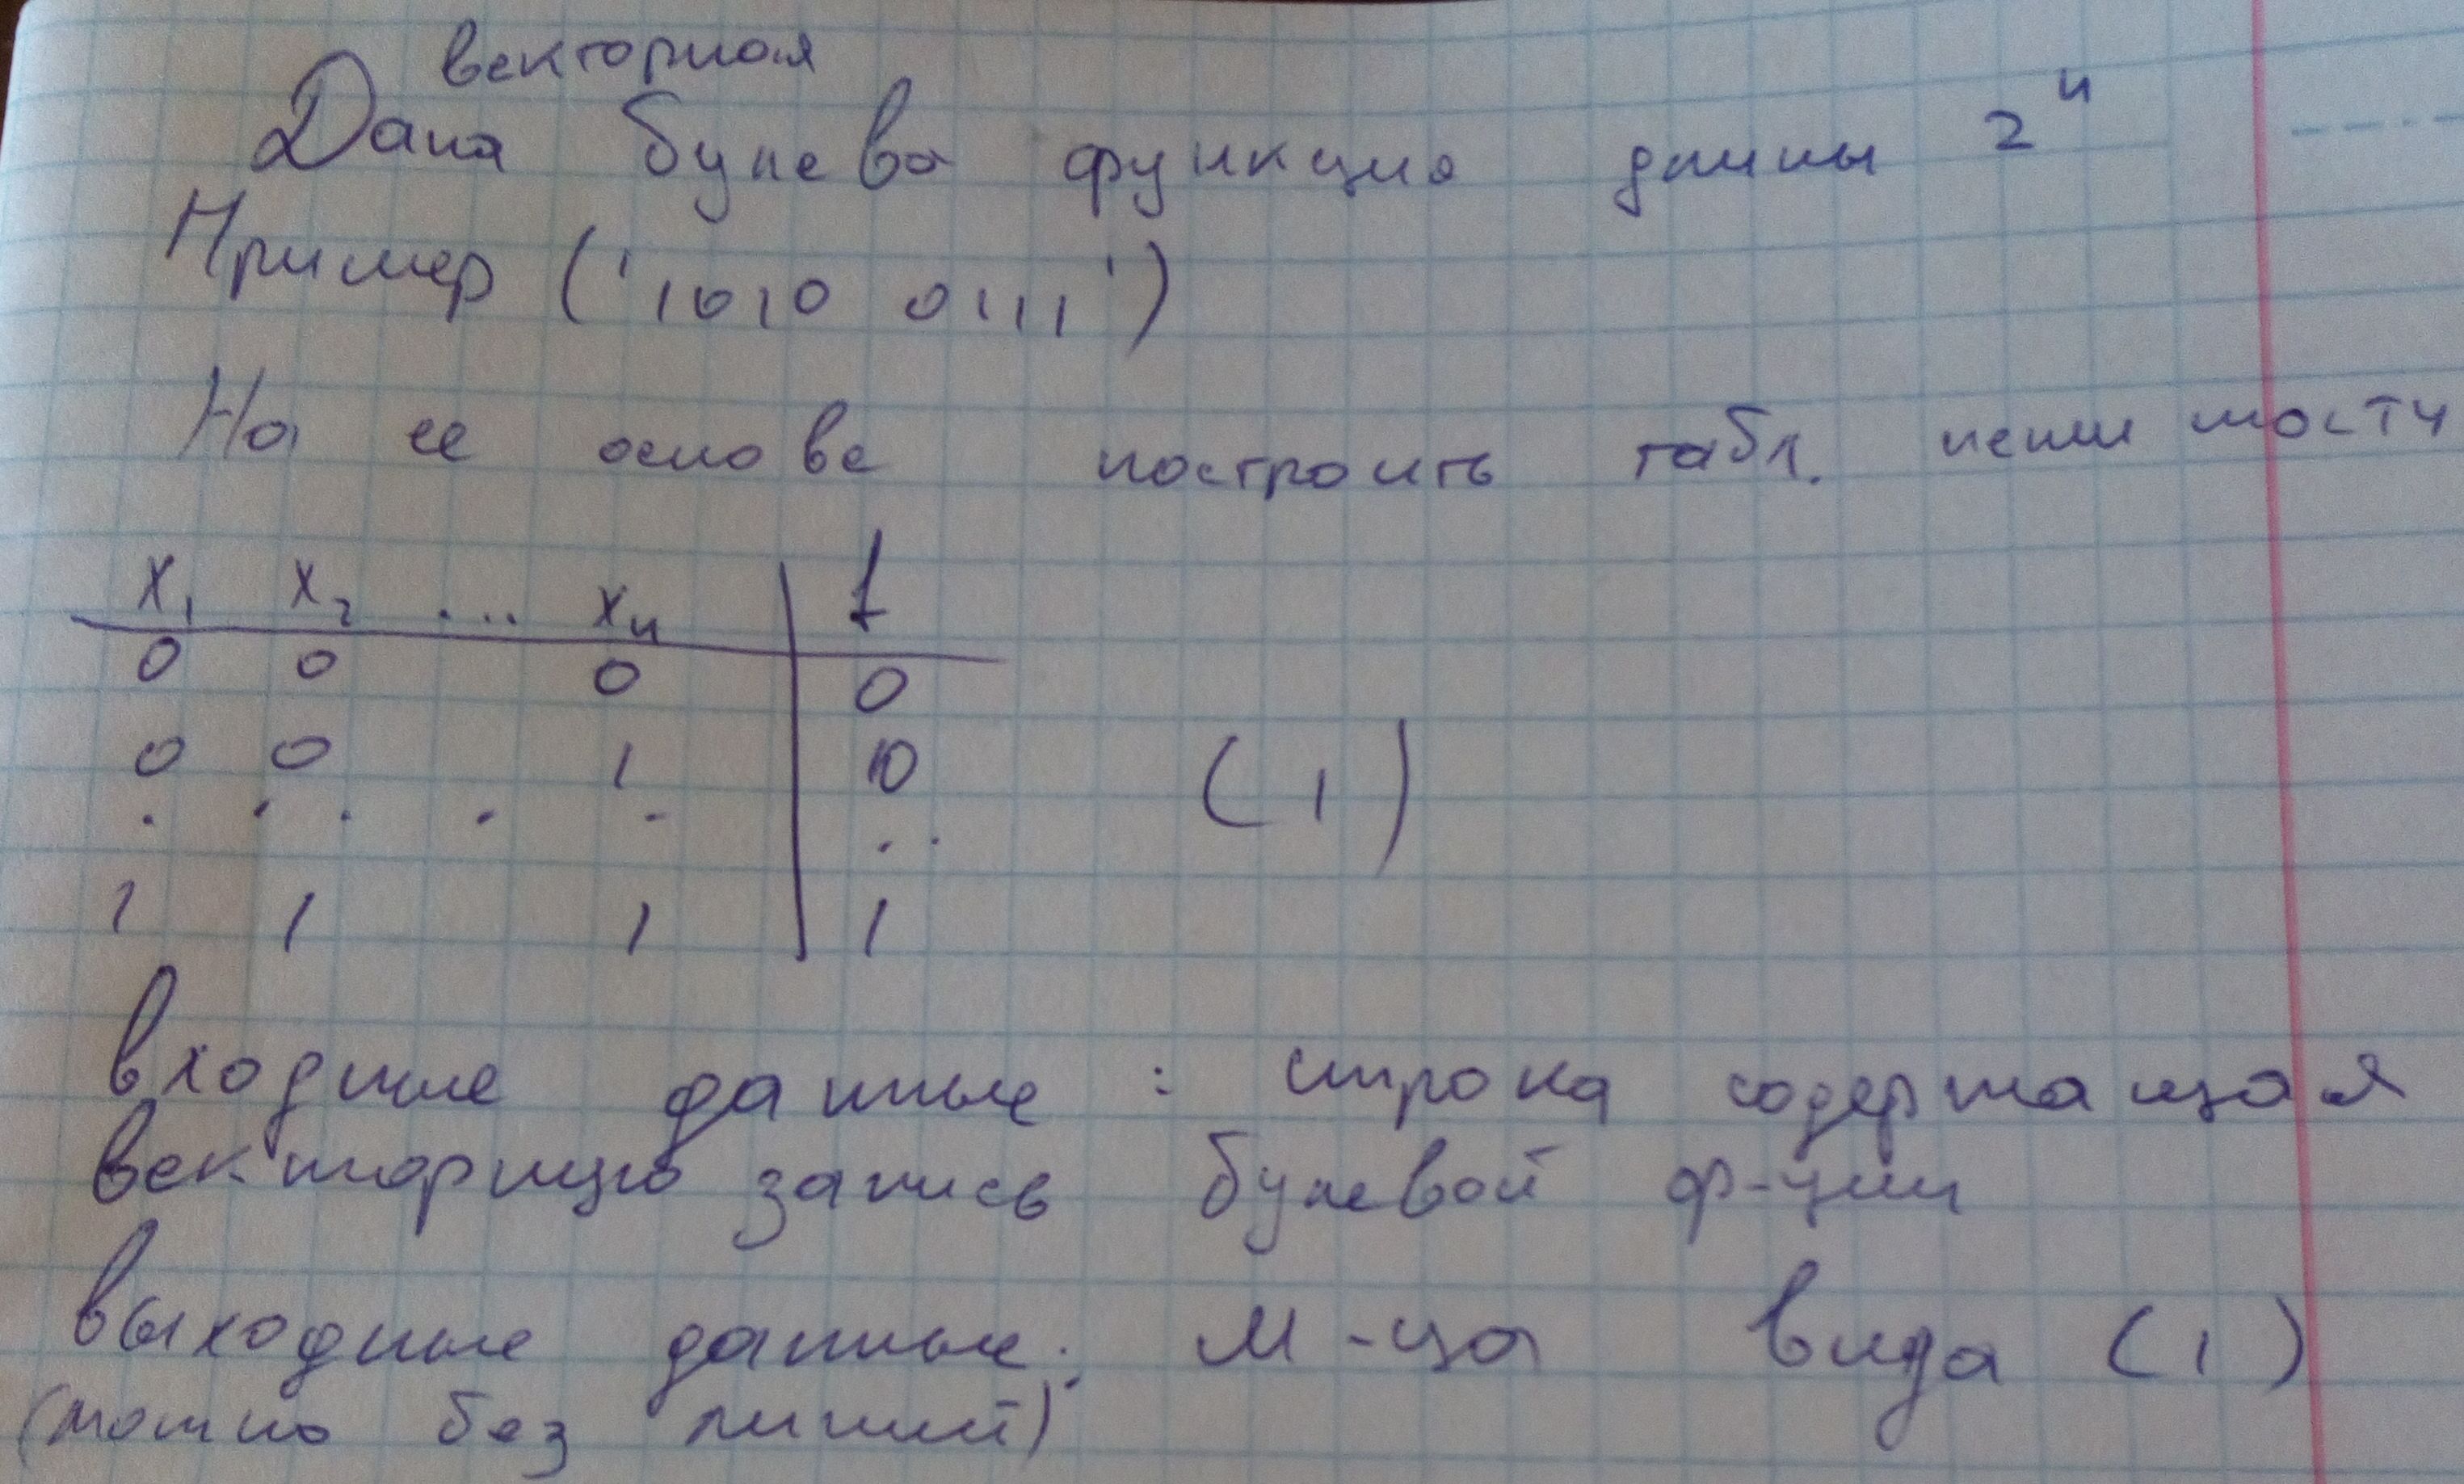 векторная
Дана булева функция длины 2ⁿ
Пример ('1010 0111')
На ее основе построить табл. истинности
x₁ x₂ ... xₙ | f
0 0 0 | 0
0 0 1 | 0
. . . . . | . .
1 1 1 | 1
(1)
входные данные : строка содержащая
векторную запись булевой ф-ции
выходные данные: м-ца вида (1)
(можно без линий)